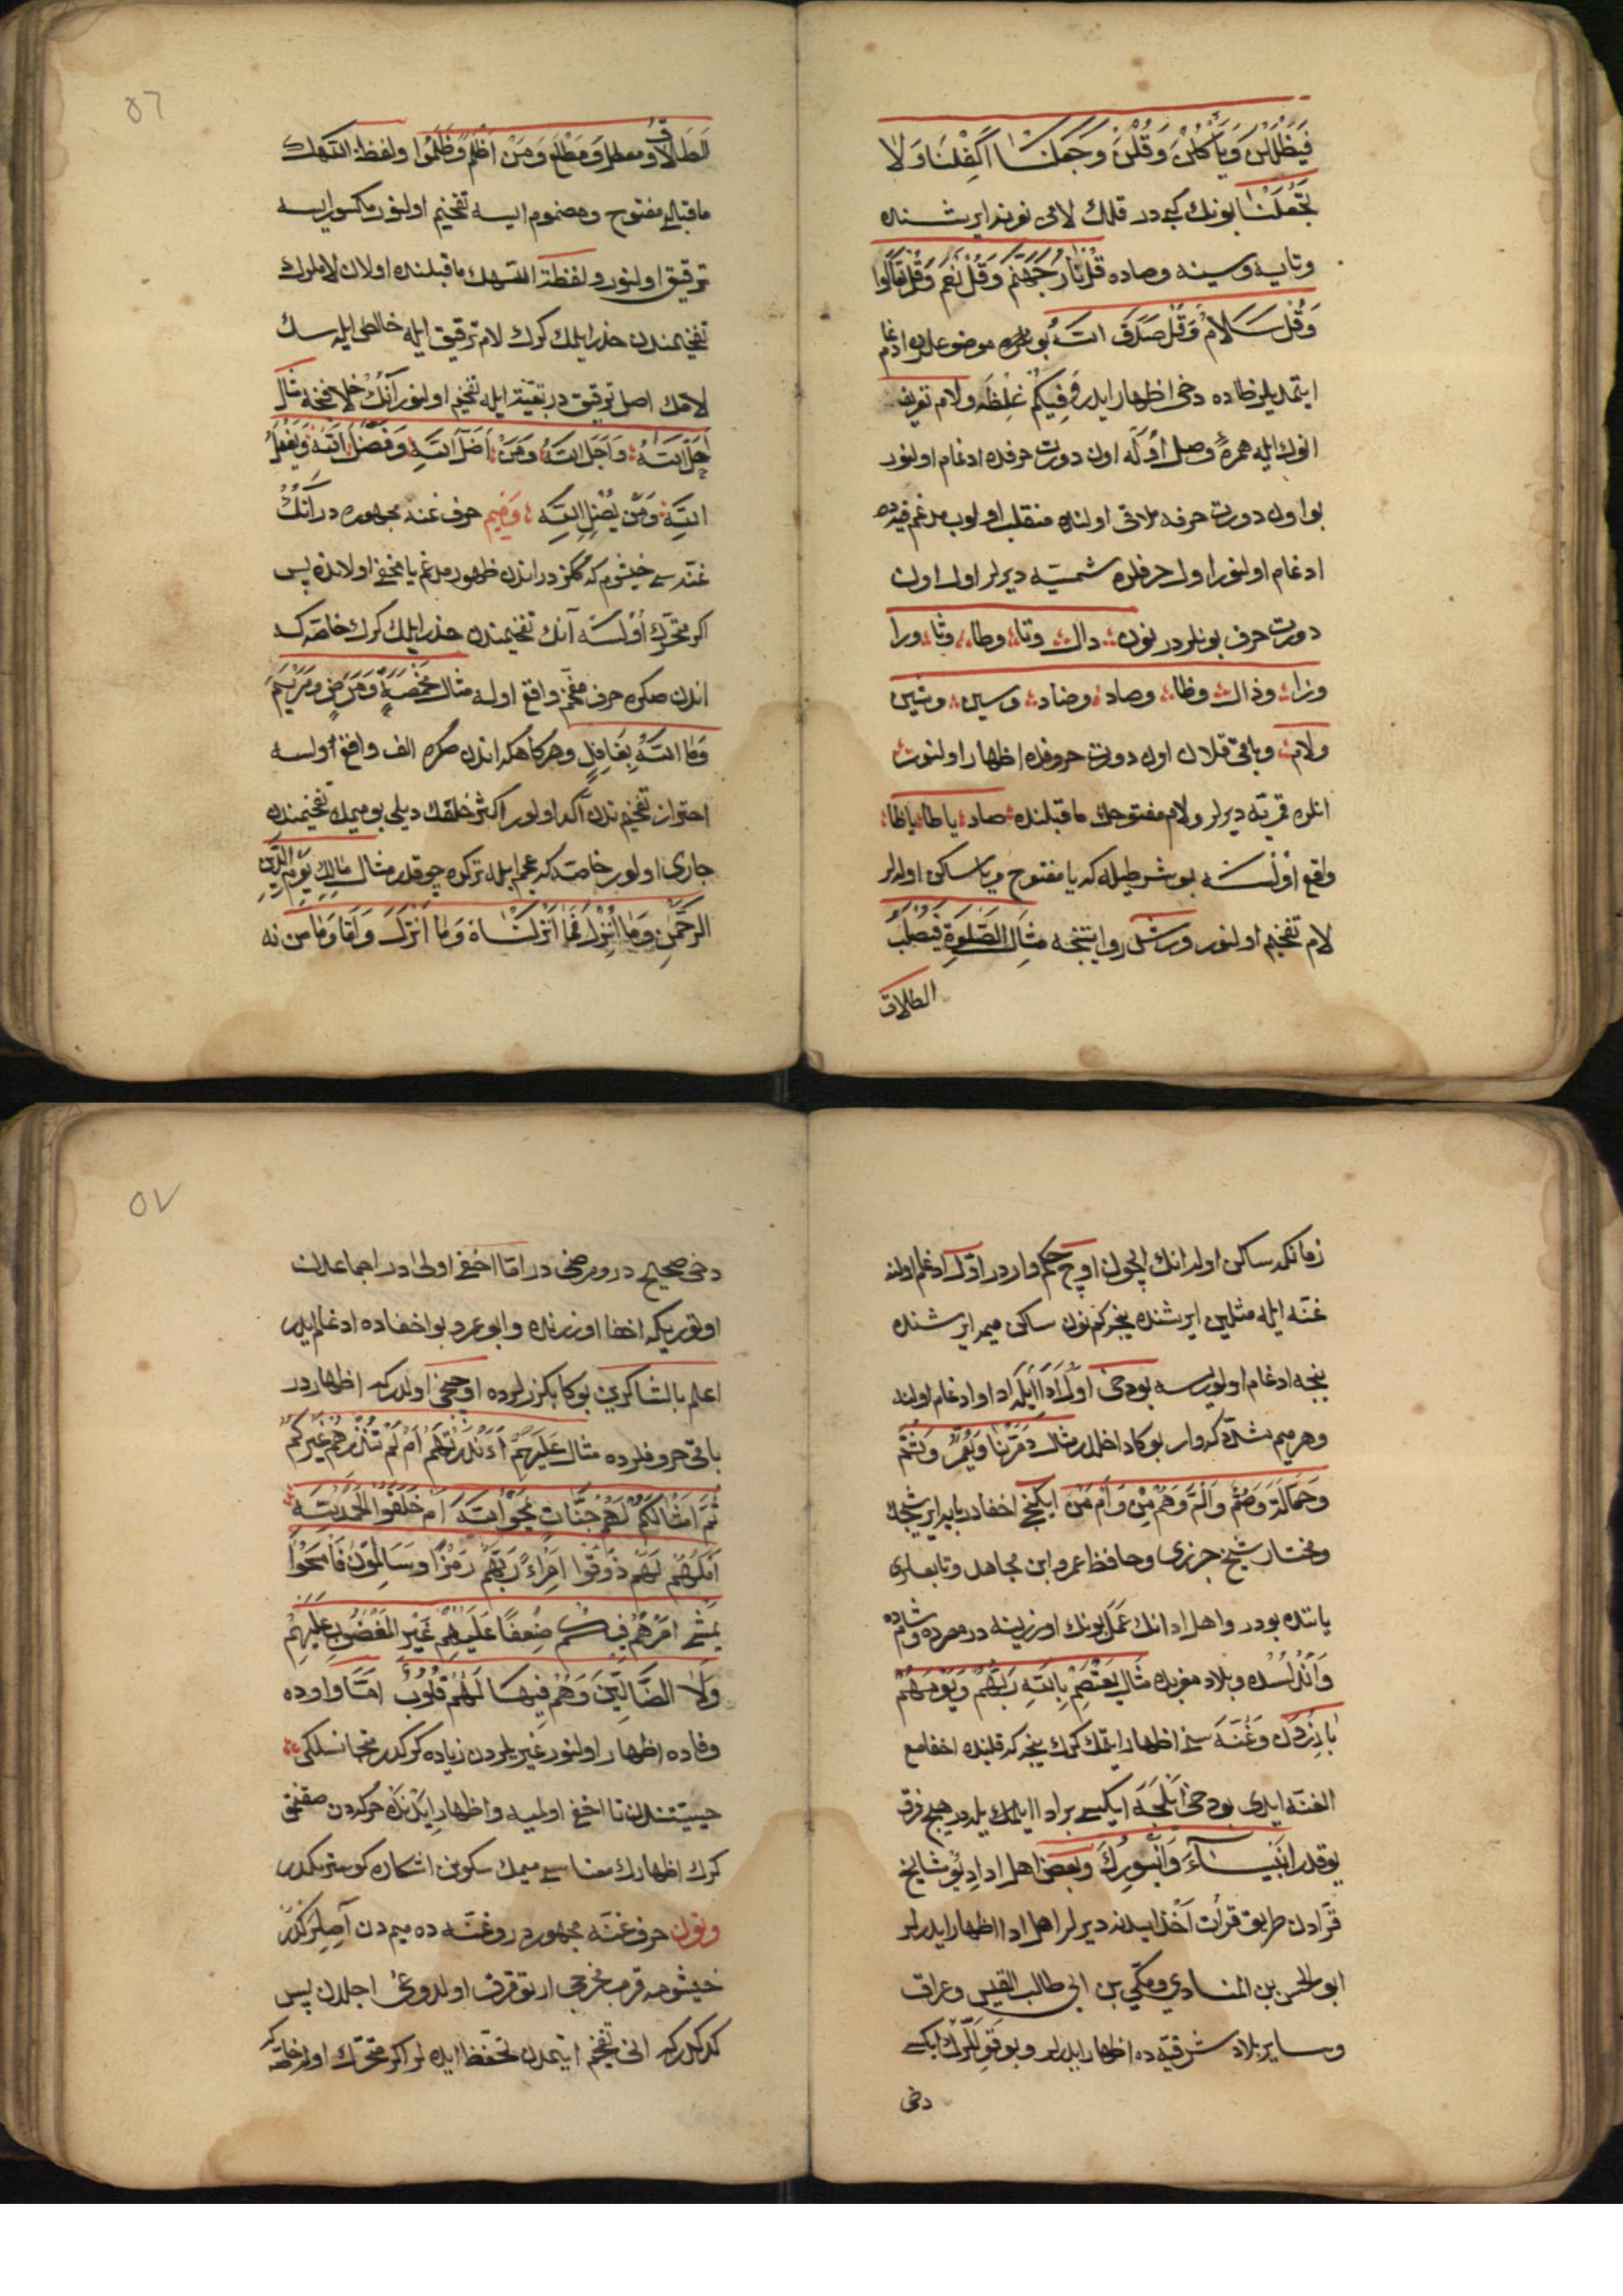 فَيَظْلَلْنَ وَيَأْكُلْنَ وَقُلْنَ وَجَعَلْنَا اَكْفِلْنَا وَلَا
تَجْعَلْنَا بونك كبيدر قلك لامى نونه ايرشنده
وتايه وسينه وصاده قُلْ نَارُ جَهَنَّمَ وَقُلْ نَعَمْ وَقُلْ تَعَالَوْا
وَقُلْ سَلَامٌ وَقُلْ صَدَقَ اللّٰهُ بو موضوعلرده ادغام
ايتمديلر ظاده دخى اظهار ايدر وَفِيكُمْ غِلْظَة ولام تعريف
انوك ايله همزۀ وصل اوله اون دورت حرفده ادغام اولنور
بو اون دورت حرفه ملاقى اولنده منقلب اولوب مدغم فيه ده
ادغام اولنور اول حرفلره شمسيّه ديرلر اول اون
دورت حرف بونلردر نون دال وتا وطا وثا ورا
وزا وذال وظا وصاد وضاد وسين وشين
ولام وباقى قلان اون دورت حروفده اظهار اولنور
انلره قمريّه ديرلر ولام مفتوحك ماقبلنده صاد يا طا يا ظا
واقع اولسه بو شرطيله كه يا مفتوح ويا ساكن اولالر
لام تفخيم اولنور ورش روايتنجه مثال الصَّلٰوةِ فَيُصْلَبُ
الطلاق
٥٦
الطَّلَاقُ ومعطل وَمَطْلَعِ وَمَنْ اَظْلَمُ وَظَلَمُوا ولفظة اللّٰهك
ماقبلى مفتوح ومضموم ايسه تفخيم اولنور مكسور ايسه
ترقيق اولنور ولفظة اللّٰهك ماقبلنده اولان لاملرك
تفخيمندن حذر ايلمك كرك لام ترقيق ايله خالطى ايله سك
لامك اصل ترقيق در بقيّة ايله تفخيم اولنور آنك مثال
اَحَلَّ اللّٰهُ وَاَجَلَ اللّٰهِ وَمَنْ اَضَلَّ اللّٰهُ وَفَضْلَ اللّٰهِ وَيَفْعَلُ
اللّٰهُ وَمَنْ يُضْلِلِ اللّٰهُ وميم حرف غنه مجهوره در آنك
غنّه سى خيشوم كه كلز در اندن ظهور مدغم يا مخفى اولانده پس
اكر متحرك اولسه آنك تفخيمندن حذر ايلمك كرك خاصّه كه
اندن صكره حرف مفخّم واقع اوله مثال مَخْمَصَةٍ وَمَرَضٍ وَمَرْيَمَ
وَمَا اللّٰهُ بِغَافِلٍ وهركاهكه اندن صكره الف واقع اولسه
احتراز تفخيم تدن آكد اولور اكثر خلقك ديلى بو ميمك تفخيمنده
جارى اولور خاصّه كه عجم ايله ترك ده چوقدر مثال مَالِكِ يَوْمِ الدِّينِ
الرَّحْمٰنِ وَمَا اُنْزِلَ فَمَا اَنْزَلْنَاهُ وَمَا اَنْزَلَ وَاَمَّا وَمَا مِنْ نه
زمانكه ساكن اولدانك ايچون اوچ حكم واردر اوّل ادغام اولنه
غنّه ايله مثلين ايرشنده نيجه كم نون ساكن ميمه ايرشنده
نيجه ادغام اولورسه بودخى اول ادا ايله ادا وادغام اولند
وهر ميم شدّه كه وار بوكا داخلدر مثال دَمَّرْنَا وَيُعَمَّرْ وَثُمَّ
وَحَمَّالَةَ وَصُمٌّ وَالٓمٓ وَهُمْ مِنْ وَاَمْ مَنْ ايكنجى اخفادر بايه ايرشيجك
ومختار شيخ جزرى وحافظ عمرو ابن مجاهد وتابعلرى
ياننده بودر واهل ادانك عملى بونك اوزرينه در مصرده وشامده
وَاَنْدَلُسْده وبلاد مغربده مثال يَعْتَصِمْ بِاللّٰهِ رَبَّهُمْ وَيَوْمَ هُمْ
بَارِزُونَ وَغُنَّه سنى اظهار ايتمك كرك نيجه كه قلبنده اخفا مع
الغنّه ايدى بودخى انلجه ايكيسى بر ادا ايلمك يلدر هيچ فرق
يوقدر اَنْبِيَاءَ وَاَنْبُورِكَ وبعض اهل ادا ديو مشايخ
قرّادن طريق قرأت اخذ ايدنه ديرلر اهل ادا اظهار ايدرلر
ابو الحسن بن المنادي ومكّي بن ابى طالب القيسي وعراق
وساير بلاد شرقيّه ده اظهار ايدرلر وبو قوللرك ايكسى
دخى
٥٧
دخى صحيح در ومرضى در امّا اخفى اولى در اجماعلان
اوتوريكه اخفا اوزرنده وابو عرو بو اخفاده ادغام ايدر
اعلم بالشاكرين بوكا بكزرلرده اوچنجى اولدركه اظهاردر
باقى حروفلرده مثال عَلَيْهِمْ ءَاَنْذَرْتَهُمْ اَمْ لَمْ تُنْذِرْهُمْ غَيْرَكُمْ
ثُمَّ اَمْثَالَكُمْ لَهُمْ جَنَّاتٍ يَمْحُوا اللّٰهُ اَمْ خَلَقُوا اَلْحَمْدُ لِلّٰهِ
لَهُمْ ذُوقُوا اِمْرَاءُ رَبَّهُمْ رَمْزًا وَسَالِمُونَ فَامْسَحُوا
يَمْشِى اَمْرَهُمْ فِيكُمْ ضَعْفًا عَلَيْهِمْ غَيْرِ الْمَغْضُوبِ عَلَيْهِمْ
وَلَا الضَّالِّينَ وَهُمْ فِيهَا لَهُمْ قُلُوبٌ امّا واوده
وفاده اظهار اولنور غيريلردن زياده كركدر متجانسلكى
حيثيتندن تا اخفى اولميه واظهار ايدنده حركدن صقنمق
كرك اظهارك معناسى ميمك سكونن اشكاره كوسترمكدر
ونون حرف غنّه مجهوردر وغنّه ده ميمدن آصيل ركدر
خيشومه قرب مخرجى ارتوقرق اولدوغى اجلدن پس
كركدركه انى تفخيم ايتمدن تحفّظ ايده لر اكر متحرّك اولسه خاصّه كه